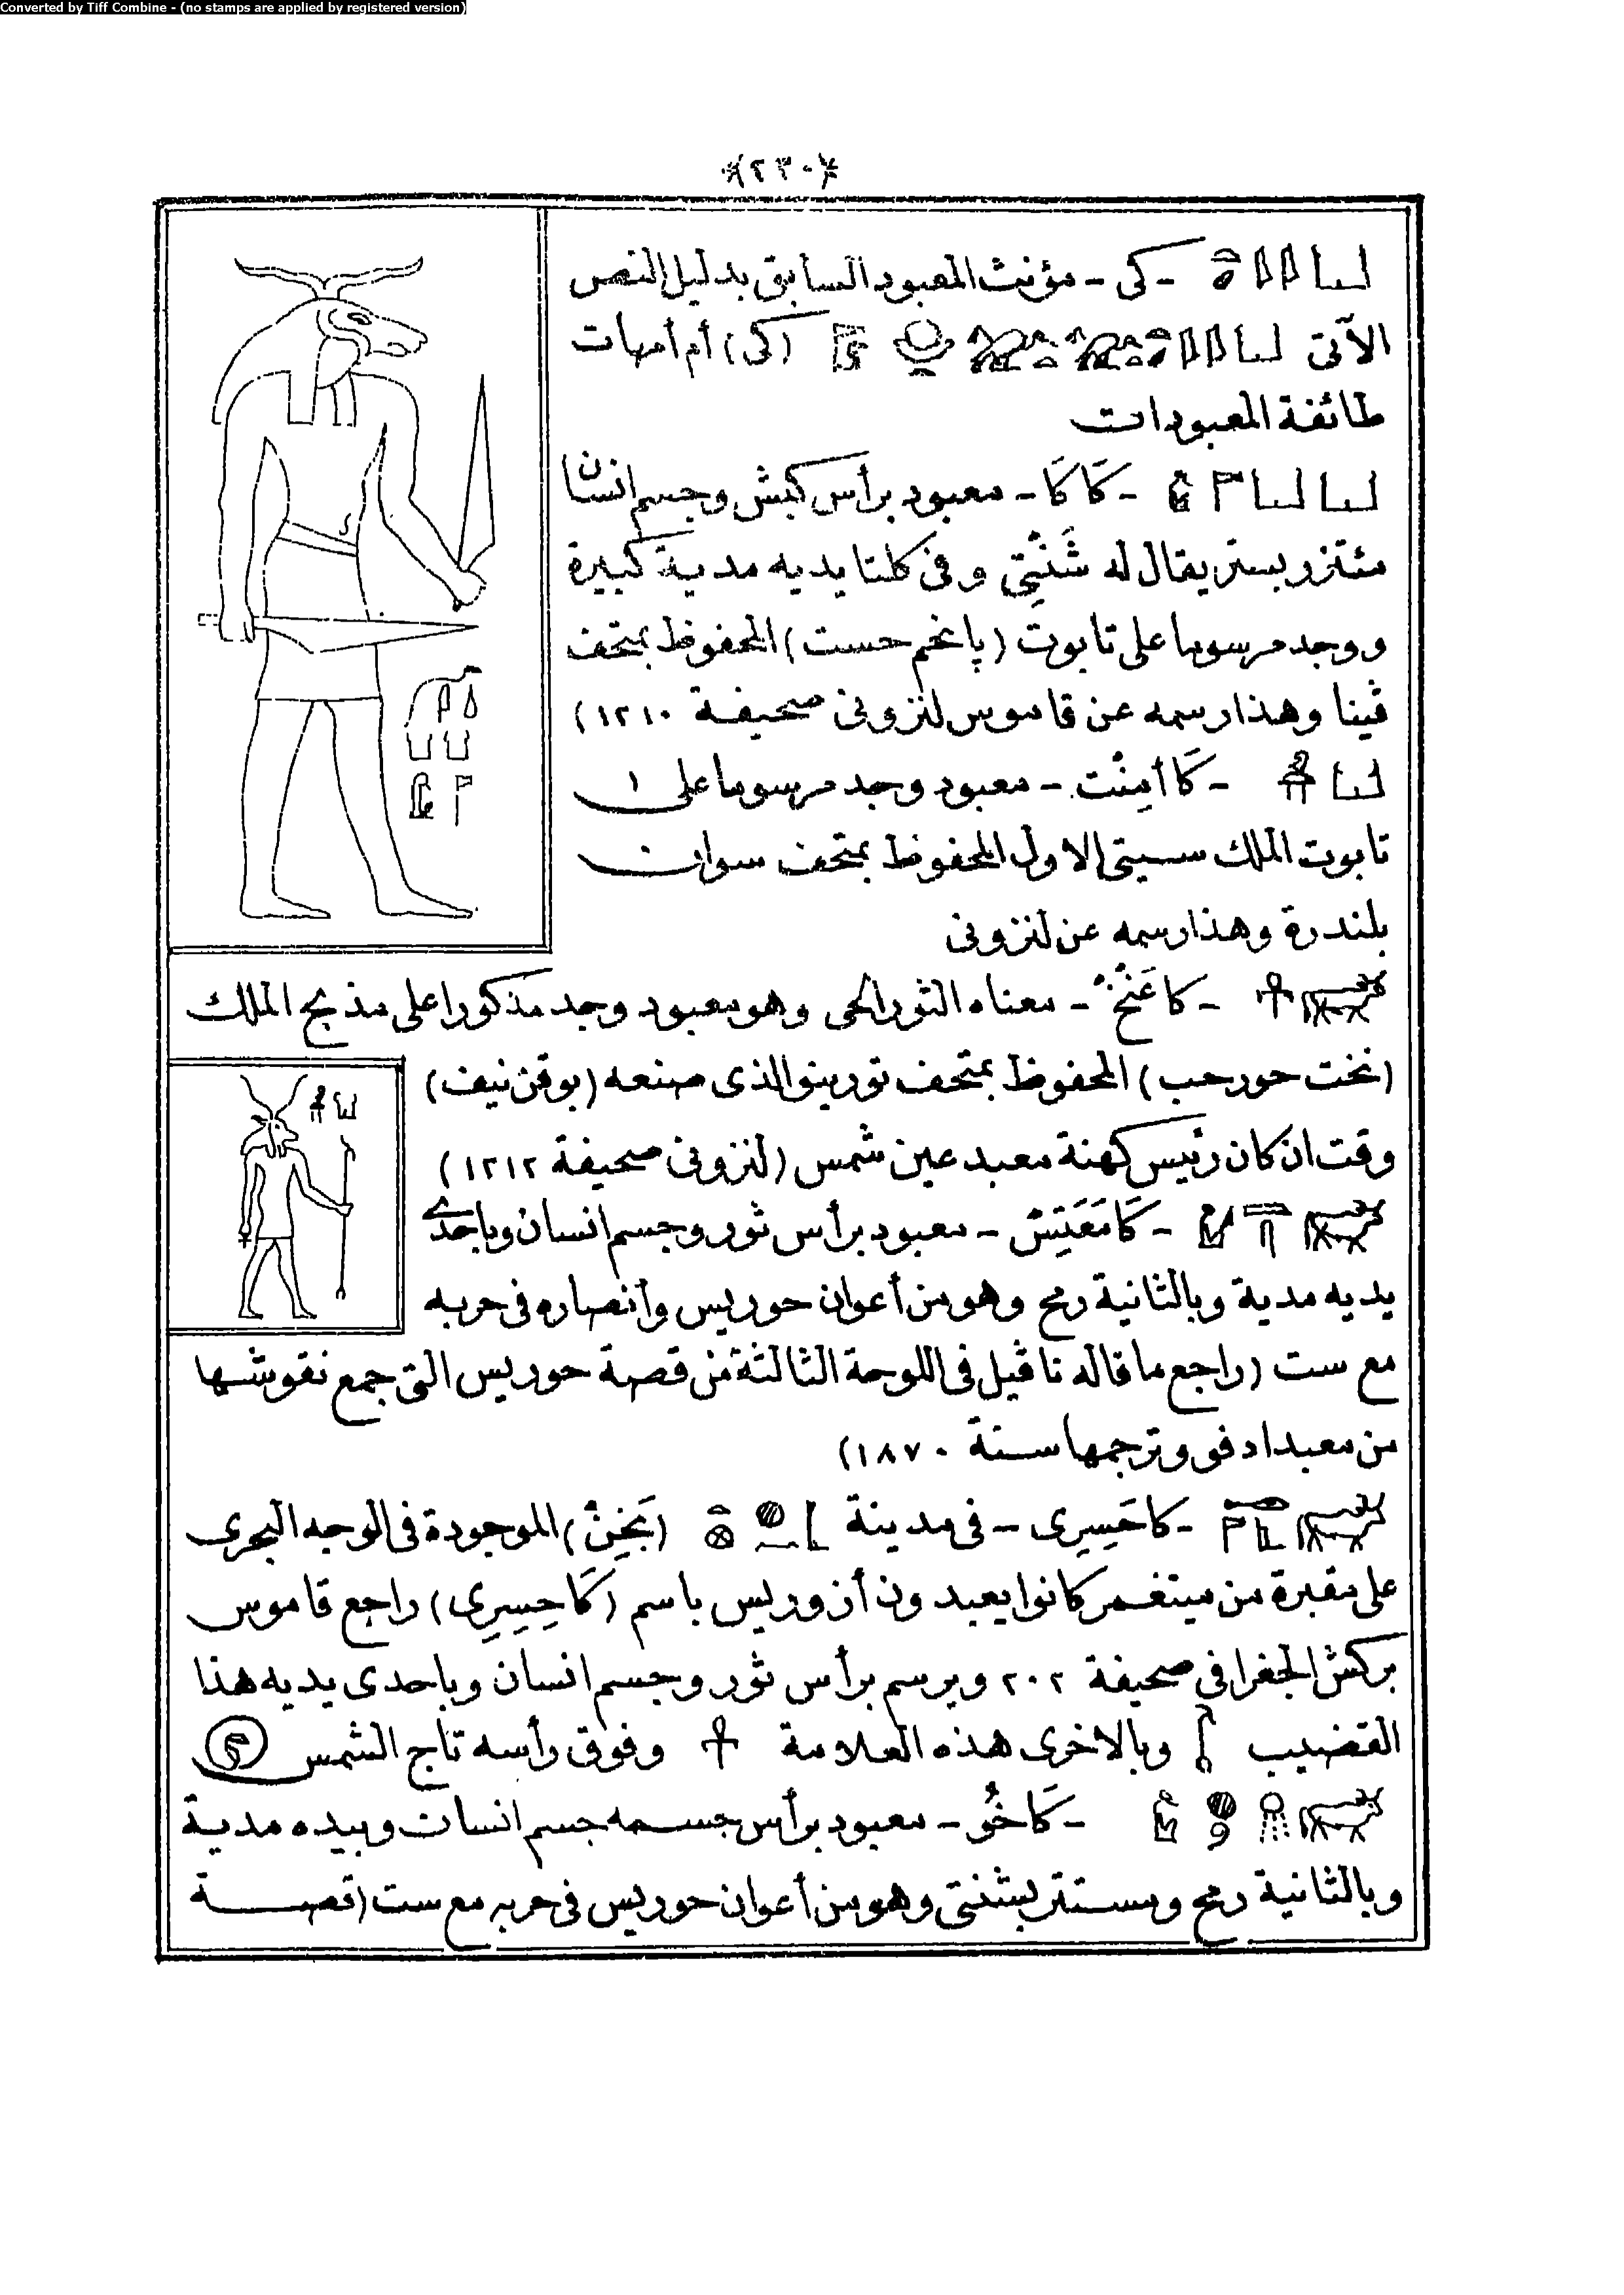 Converted by Tiff Combine - (no stamps are applied by registered version)
﴿٢٣٠﴾
- كى - مؤنث المعبود السابق بدليل النص
الآتى (كى) أم أمهات
طائفة المعبودات
- كَاكَا - معبود برأس كبش وجسم انسان
مئتزر بستر يقال له شَنْتِى وفى كلتا يديه مدية كبيرة
ووجد مرسوما على تابوت (پانخم حست) المحفوظ بمتحف
ڤينا وهذا رسمه عن قاموس لنزونى صحيفة ١٢١٠)
- كَا أمِنْت - معبود وجد مرسوما على
تابوت الملك سيتى الاول المحفوظ بمتحف سوان
بلندرة وهذا رسمه عن لنزونى
- كاعَنْخْ - معناه الثور الحى وهو معبود وجد مذكورا على مذبح الملك
(نخت حور حب) المحفوظ بمتحف تورينو الذى صنعه (بوقن نيف)
وقت ان كان رئيس كهنة معبد عين شمس (لنزونى صحيفة ١٢١٢)
- كَامَعَتِسْ - معبود برأس ثور وجسم انسان وباحدى
يديه مدية وبالثانية رمح وهو من أعوان حوريس وأنصاره فى حربه
مع ست (راجع ما قاله ناڤيل فى اللوحة الثالثة من قصة حوريس التى جمع نقوشها
من معبد ادفو وترجمها سنة ١٨٧٠)
- كاحَسِرِى - فى مدينة (بَخِنْ) الموجودة فى الوجه البحرى
على مقبرة من ميتغمر كانوا يعبدون أزوريس باسم (كَاحِسِرِى) راجع قاموس
بركش الجغرافى صحيفة ٢٠٢ ويرسم برأس ثور وجسم انسان وباحدى يديه هذا
القضيب وبالاخرى هذه العلامة وفوق رأسه تاج الشمس
- كَاخُو - معبود برأس جسمه جسم انسان وبيده مدية
وبالثانية رمح ومستتر بشنتى وهو من أعوان حوريس فى حربه مع ست (قصة